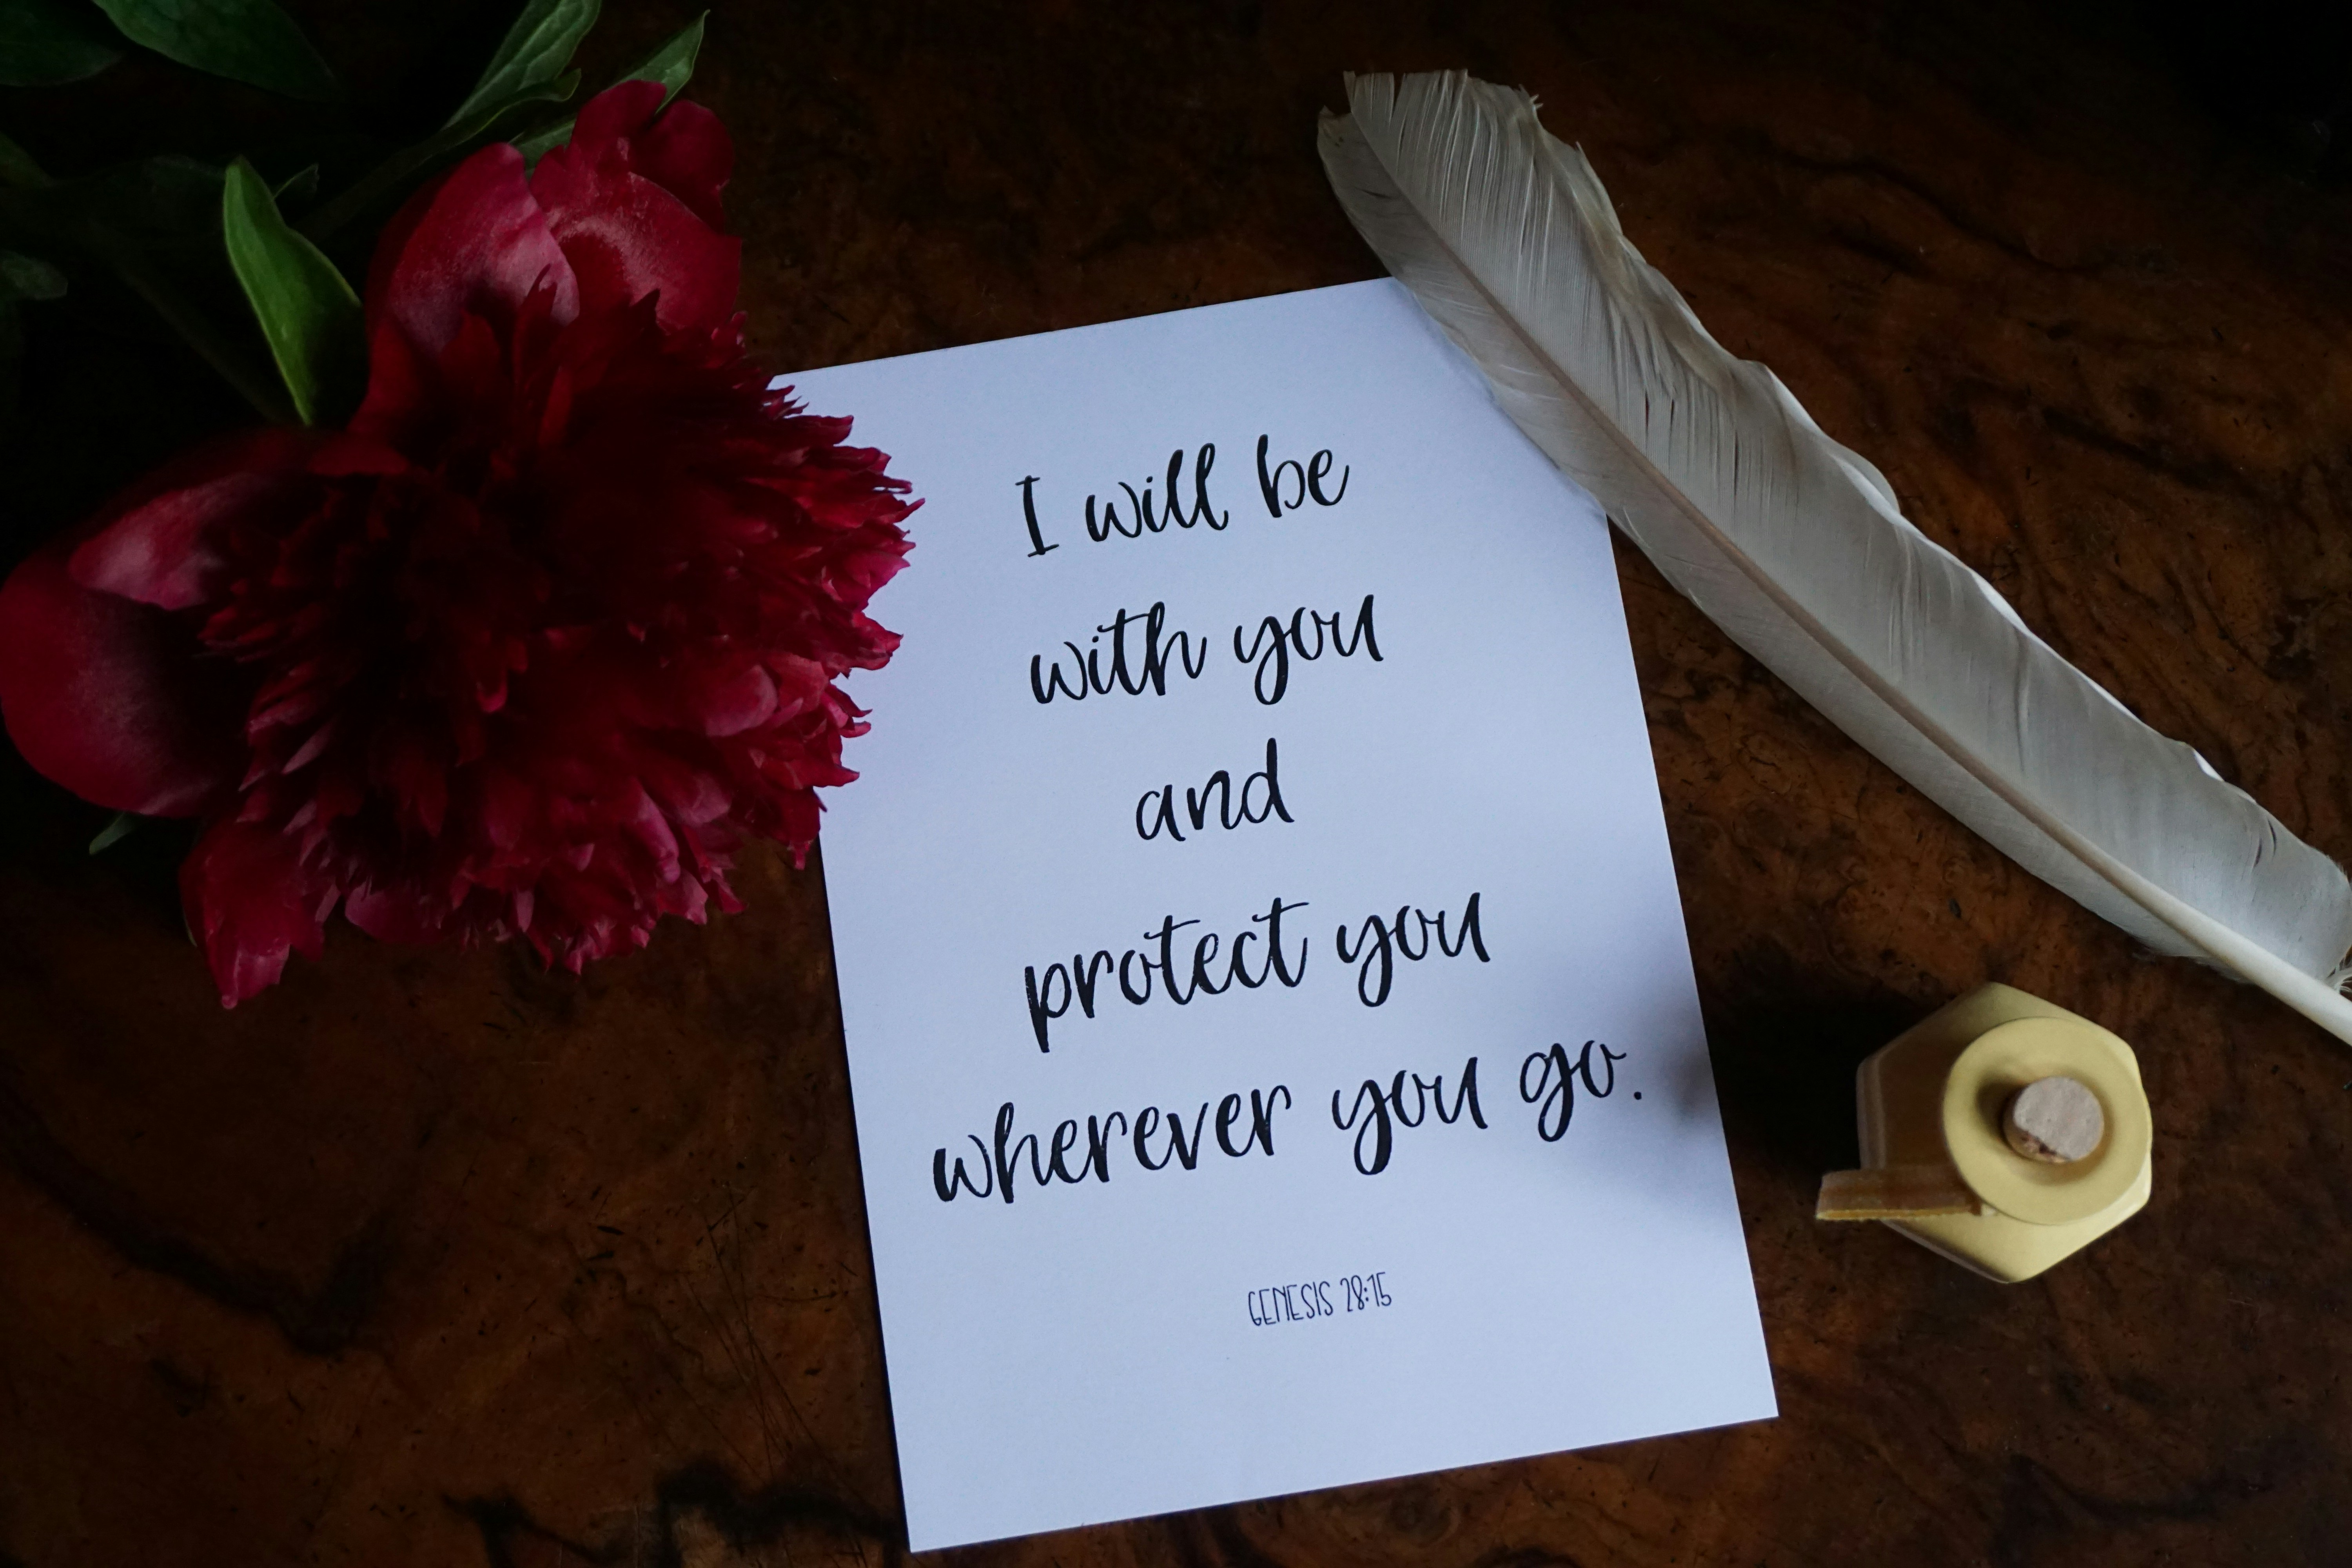 I will be
with you
and
protect you
wherever you go.
GENESIS 28:15